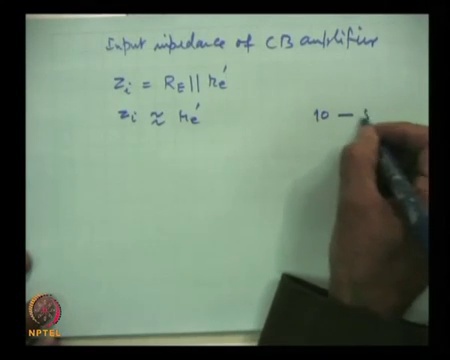 Input impedance of CB amplifier
Zi = RE || re'
Zi ≈ re'
10 –
NPTEL